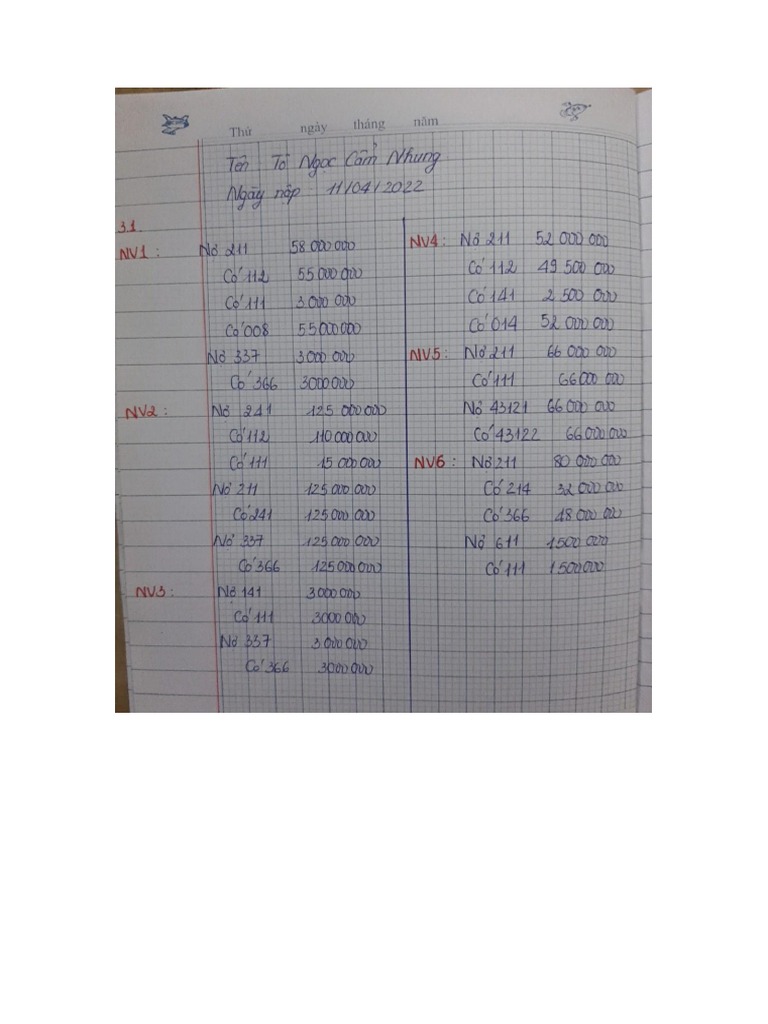 Thứ ngày tháng năm
Tên Tô Ngọc Cẩm Nhung
Ngày nộp 11/04/2022
3.1
NV1 : Nợ 211 58 000 000
Có 112 55 000 000
Có 111 3 000 000
Có 008 55 000 000
Nợ 337 3 000 000
Có 366 3 000 000
NV2 : Nợ 241 125 000 000
Có 112 110 000 000
Có 111 15 000 000
Nợ 211 125 000 000
Có 241 125 000 000
Nợ 337 125 000 000
Có 366 125 000 000
NV3 : Nợ 141 3 000 000
Có 111 3 000 000
Nợ 337 3 000 000
Có 366 3 000 000
NV4 : Nợ 211 52 000 000
Có 112 49 500 000
Có 141 2 500 000
Có 014 52 000 000
NV5 : Nợ 211 66 000 000
Có 111 66 000 000
Nợ 43121 66 000 000
Có 43122 66 000 000
NV6 : Nợ 211 80 000 000
Có 214 32 000 000
Có 366 48 000 000
Nợ 611 1 500 000
Có 111 1 500 000